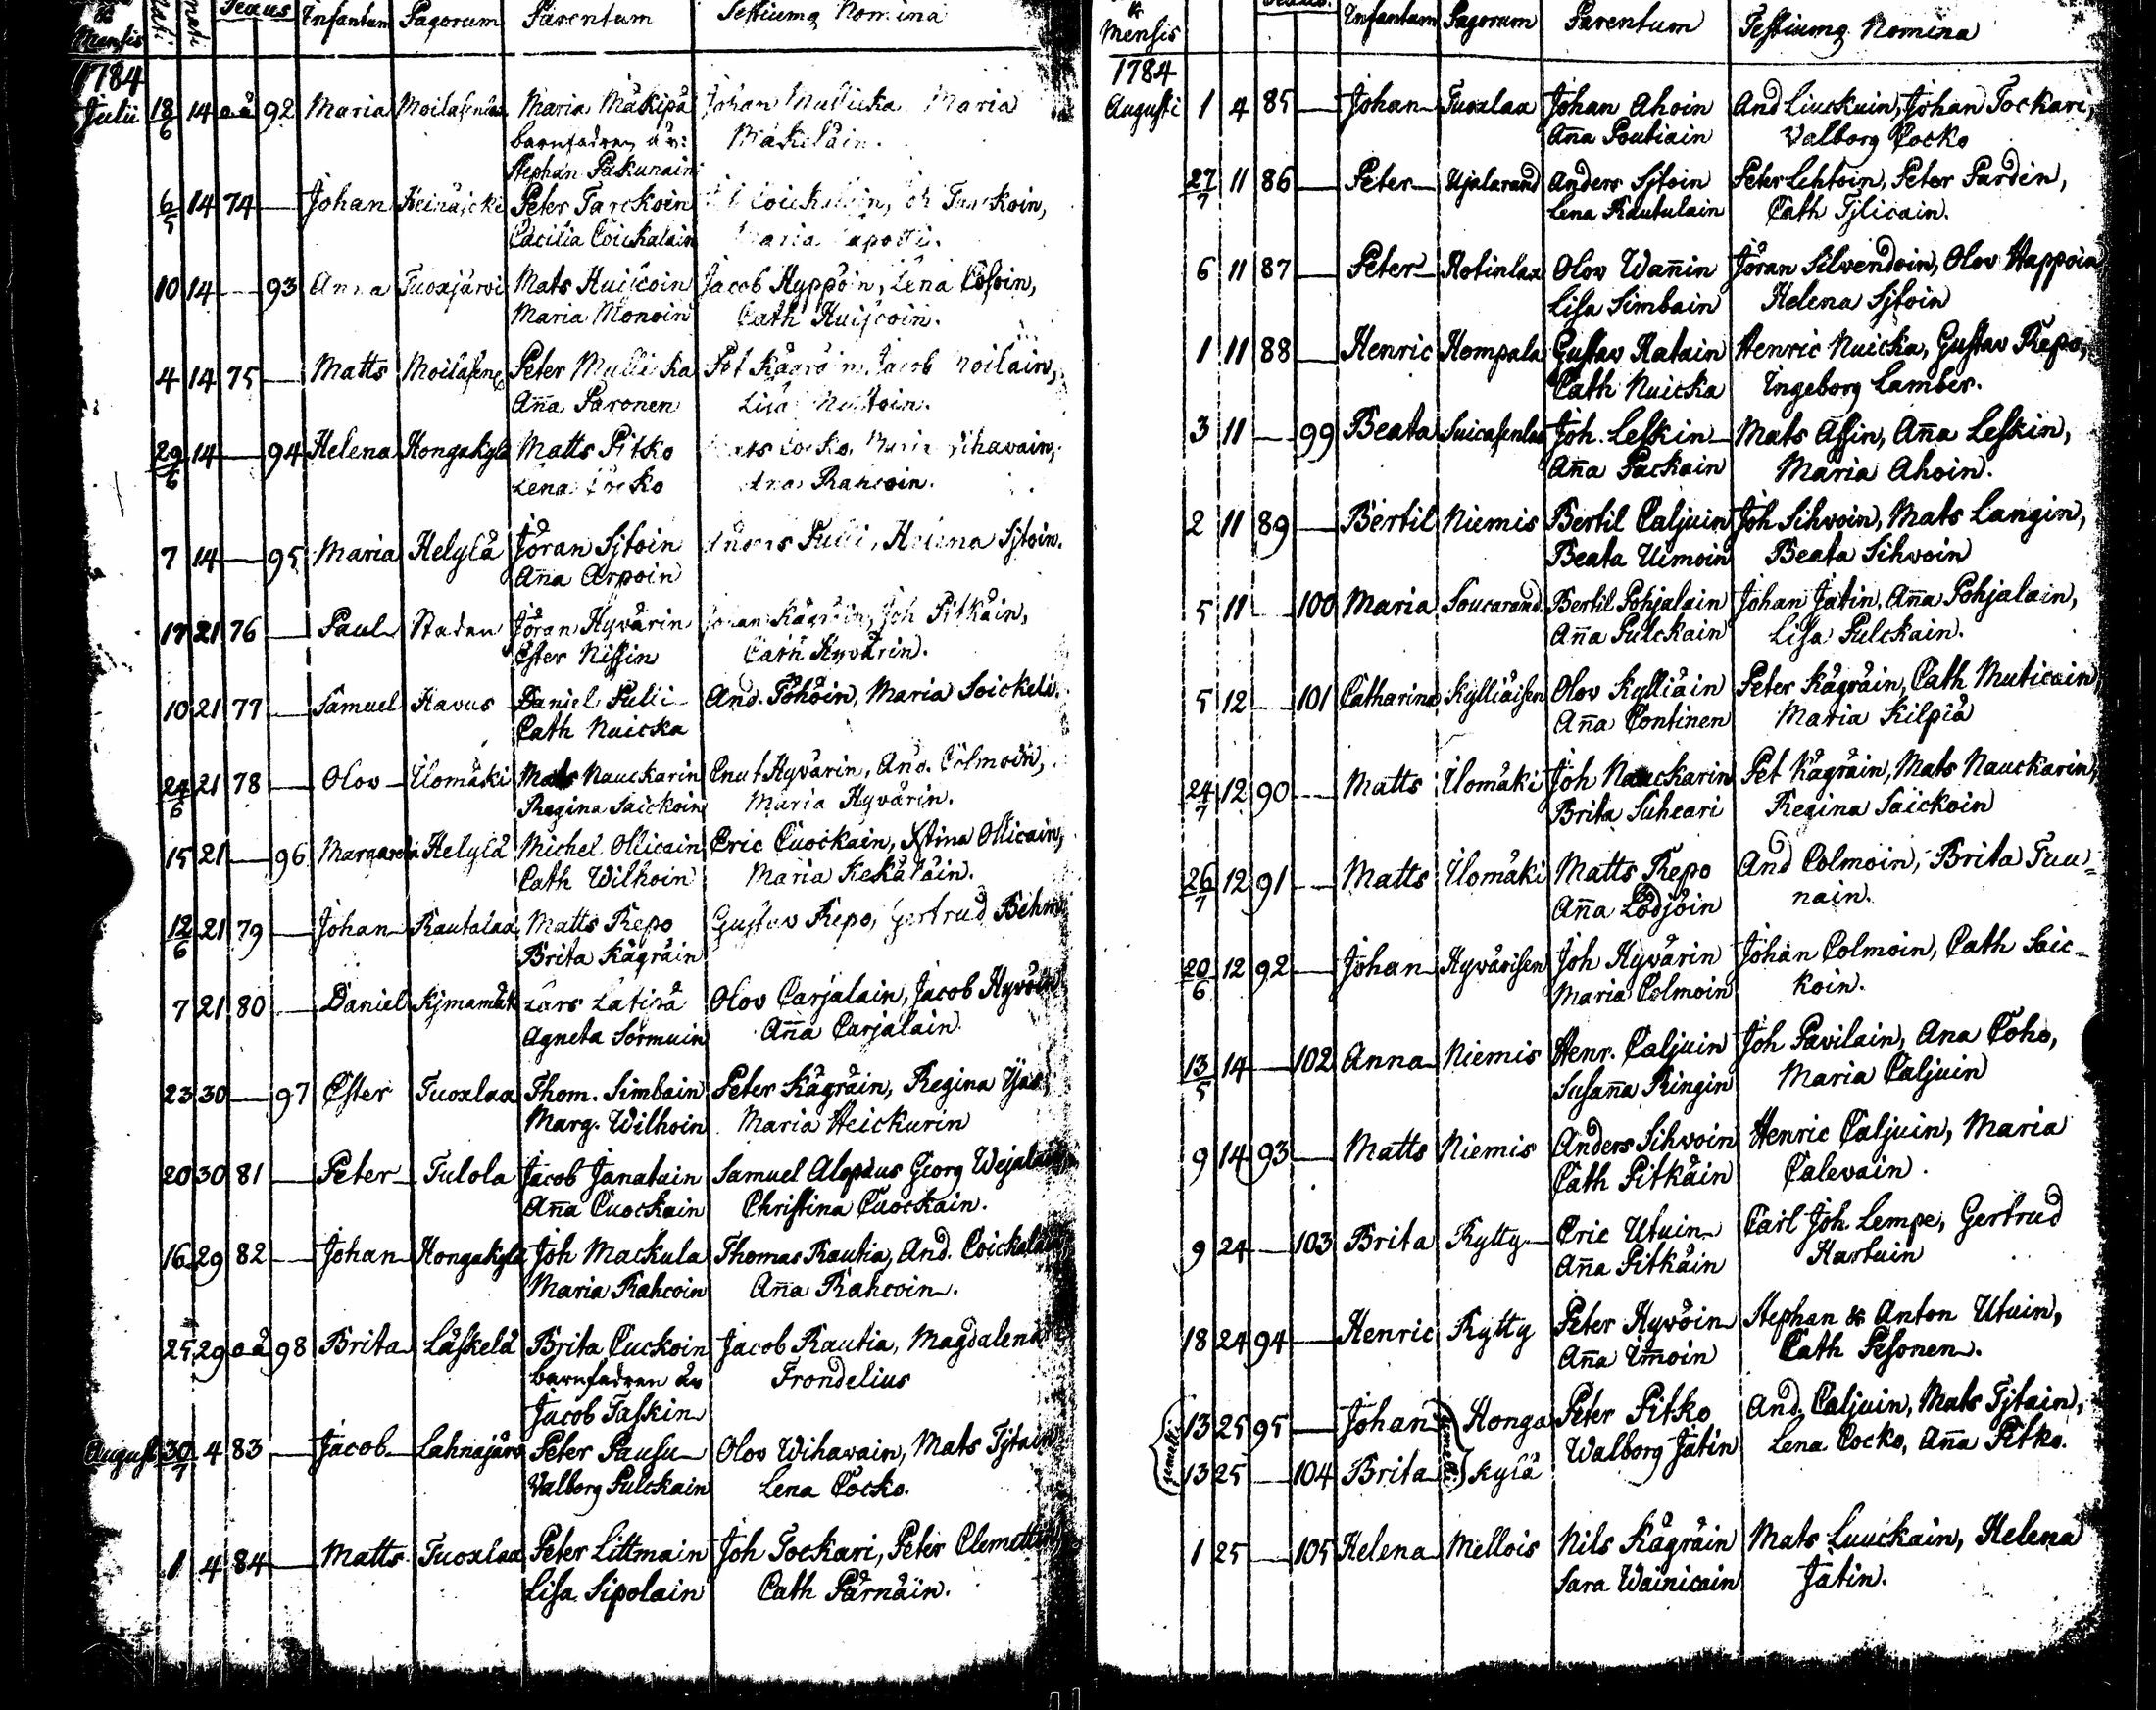 & Mensis Sexus Infantum Pagorum Parentum Testiumq Nomina
1784
Julii 18/6 14 oä 92 Maria Moilasenlax Maria Mäkipä Johan Mullicka Maria
barnfadren är: Mäkeläin.
Stephan Packunain
6/5 14 74 — Johan Heinäjocki Peter Tarckoin Coickalain, Joh Tarckoin,
Cäcilia Coickalain Maria
10 14 — 93 Anna Tuoxjärvi Mats Huiscoin Jacob Hyppöin, Lena Cososin,
Maria Mönoin Cath Huiscoin.
4 14 75 — Matts Moilasenl Peter Mullicka Pet Kägräin, Jacob Moilain,
Aña Paronen Lisa
29/6 14 — 94 Helena Hongakylä Matts Pitko Mats Cocko, Maria Wihavain,
Lena Cocko Ana Rahcoin.
7 14 — 95 Maria Helylä Jöran Sjtoin Anders Pulli, Helena Sjtoin.
Aña Arpoin
17 21 76 — Paul Staden Jöran Hyvärin Johan Kägräin, Joh Pitkäin,
Ester Nissin Cath Hyvärin.
10 21 77 — Samuel Havus Daniel Pulli And. Pöhöin, Maria Soickeli.
Cath Nuicka
24/6 21 78 — Olov Ilomäki Mats Nauckarin Cnut Hyvärin, And. Colmoin,
Regina Saickoin Maria Hyvärin.
15 21 — 96 Margareta Helylä Michel Ollicain Eric Cuockain, Xtina Ollicain,
Cath Wilhoin Maria Kekäläin.
12/6 21 79 — Johan Rautalax Matts Repo Gustav Repo, Gertrud Behm
Brita Kägräin
7 21 80 — Daniel Kjmamäk Lars Lätipä Olov Carjalain, Jacob Hyvöin
Agneta Sormuin Aña Carjalain.
23 30 — 97 Ester Tuoxlax Thom. Simbain Peter Kägräin, Regina
Marg. Wilhoin Maria Heickurin
20 30 81 — Peter Tulola Jacob Janatain Samuel Alopäus Georg Wejalain
Aña Cuockain Christina Cuockain.
16 29 82 — Johan Hongakylä Joh Mackula Thomas Rautia, And. Coickalain
Maria Rahcoin Aña Rahcoin.
25 29 oä 98 Brita Läskelä Brita Cuckoin Jacob Rautia, Magdalena
barnfadren är Frondelius
Jacob Taskin
Augusti 30/7 4 83 — Jacob Lahnajärv Peter Pausu Olov Wihavain, Mats Tjtain
Valborg Pulckain Lena Cocko.
1 4 84 — Matts Tuoxlax Peter Littmain Joh Tockari, Peter Clemettin
Lisa Sipolain Cath Pärnäin.
& Mensis Sexus. Infantum Pagorum Parentum Testiumq Nomina
1784
Augusti 1 4 85 — Johan Tuoxlax Johan Ahoin And Liuckuin, Johan Tockari,
Aña Poutiain Valborg Cocko
27/7 11 86 — Peter Ujalarand Anders Sjtoin Peter Lehtoin, Peter Pardèn,
Lena Rautulain Cath Tjlicain.
6 11 87 — Peter Rotinlax Olov Wañin Jöran Silvendoin, Olov Happoin
Lisa Simbain Helena Sjtoin
1 11 88 — Henric Hempala Gustav Ratain Henric Nuicka, Gustav Repo,
Cath Nuicka Ingeborg Lamber.
3 11 — 99 Beata Suicasenlax Joh. Leskin Mats Assin, Aña Leskin,
Aña Packain Maria Ahoin.
2 11 89 — Bertil Niemis Bertil Caljuin Joh Sihvoin, Mats Langin,
Beata Uimoin Beata Sihvoin
5 11 — 100 Maria Soucarand Bertil Pohjalain Johan Jätin, Aña Pohjalain,
Aña Pulckain Lisa Pulckain.
5 12 — 101 Catharina Kylliäisen Olov Kylliäin Peter Kägräin, Cath Muticain,
Aña Continen Maria Kilpiä
24/7 12 90 — Matts Ilomäki Joh Nauckarin Pet Kägräin, Mats Nauckarin,
Brita Suhcari Regina Saickoin
26/7 12 91 — Matts Ilomäki Matts Repo And Colmoin, Brita Tuu=
Aña Lodjöin nain.
20/6 12 92 — Johan Hyvärisen Joh Hyvärin Johan Colmoin, Cath Saic=
Maria Colmoin koin.
13/5 14 — 102 Anna Niemis Henr. Caljuin Joh Pavilain, Ana Coho,
Susaña Ringin Maria Caljuin
9 14 93 — Matts Niemis Anders Sihvoin Henric Caljuin, Maria
Cath Pitkäin Calevain.
9 24 — 103 Brita Rytty Eric Utuin Carl Joh. Lempe, Gertrud
Aña Pitkäin Hartuin
18 24 94 — Henric Rytty Peter Hyvöin Stephan & Anton Utuin,
Aña Im̃oin Cath Pesonen.
gemelli 13 25 95 — Johan gemelli Honga Peter Pitko And. Caljuin, Mats Tjtain,
13 25 — 104 Brita kylä Walborg Jätin Lena Cocko, Aña Pitko.
1 25 — 105 Helena Mellois Nils Kägräin Mats Luuckain, Helena
Sara Wainicain Jätin.